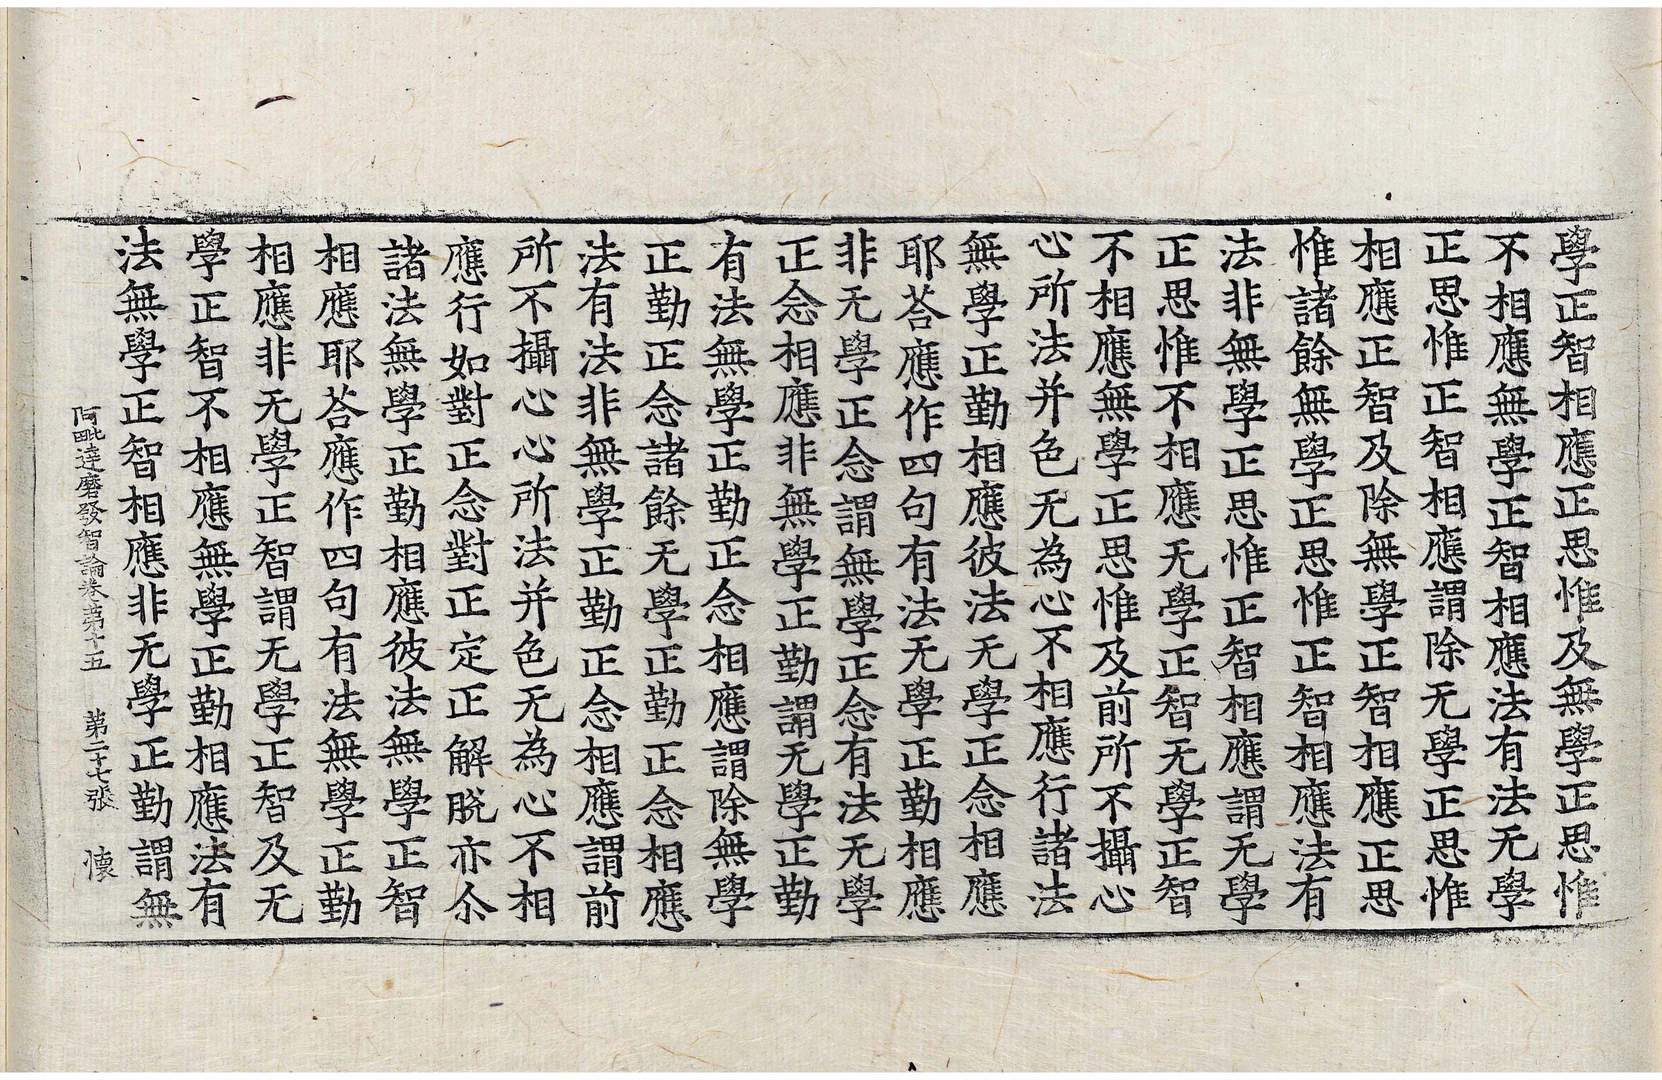 學正智相應正思惟及無學正思惟
不相應無學正智相應法有法无學
正思惟正智相應謂除无學正思惟
相應正智及除無學正智相應正思
惟諸餘無學正思惟正智相應法有
法非無學正思惟正智相應謂无學
正思惟不相應无學正智无學正智
不相應無學正思惟及前所不攝心
心所法并色无為心不相應行諸法
無學正勤相應彼法无學正念相應
耶荅應作四句有法无學正勤相應
非无學正念謂無學正念有法无學
正念相應非無學正勤謂无學正勤
有法無學正勤正念相應謂除無學
正勤正念諸餘无學正勤正念相應
法有法非無學正勤正念相應謂前
所不攝心心所法并色无為心不相
應行如對正念對正定正解脫亦尒
諸法無學正勤相應彼法無學正智
相應耶荅應作四句有法無學正勤
相應非无學正智謂无學正智及无
學正智不相應無學正勤相應法有
法無學正智相應非无學正勤謂無
阿毗達磨發智論卷第十五 第二十七張 懷